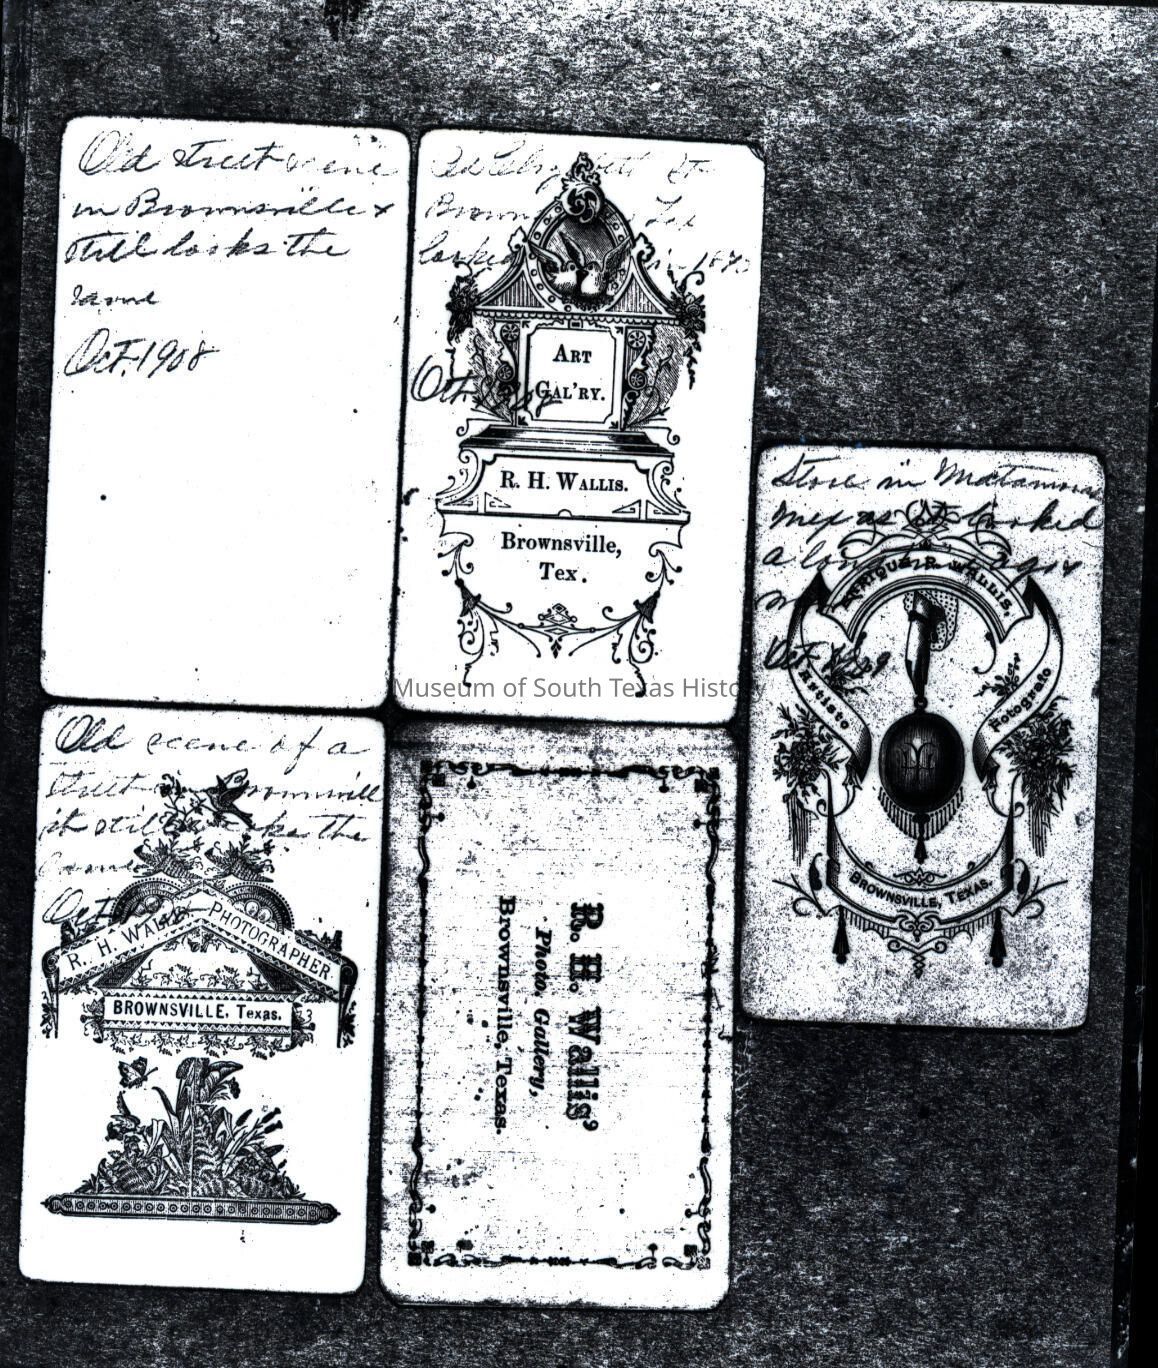 Old street scene
in Brownsville &
still looks the
same
Oct. 1908
Old Elizabeth St
Brown Tex
looked in 18
Oct.
ART
GAL'RY.
R. H. WALLIS.
Brownsville,
Tex.
Store in Matamoros
Mex as it looked
a long ago
Oct
ENRIQUE R. WALLIS,
Artisto
Fotografo
BROWNSVILLE, TEXAS.
Museum of South Texas History
Old scene of a
street Brownsvill
it still looks the
same
Oct
R. H. WALLIS PHOTOGRAPHER
BROWNSVILLE, Texas.
R. H. Wallis'
Photo. Gallery,
Brownsville, Texas.